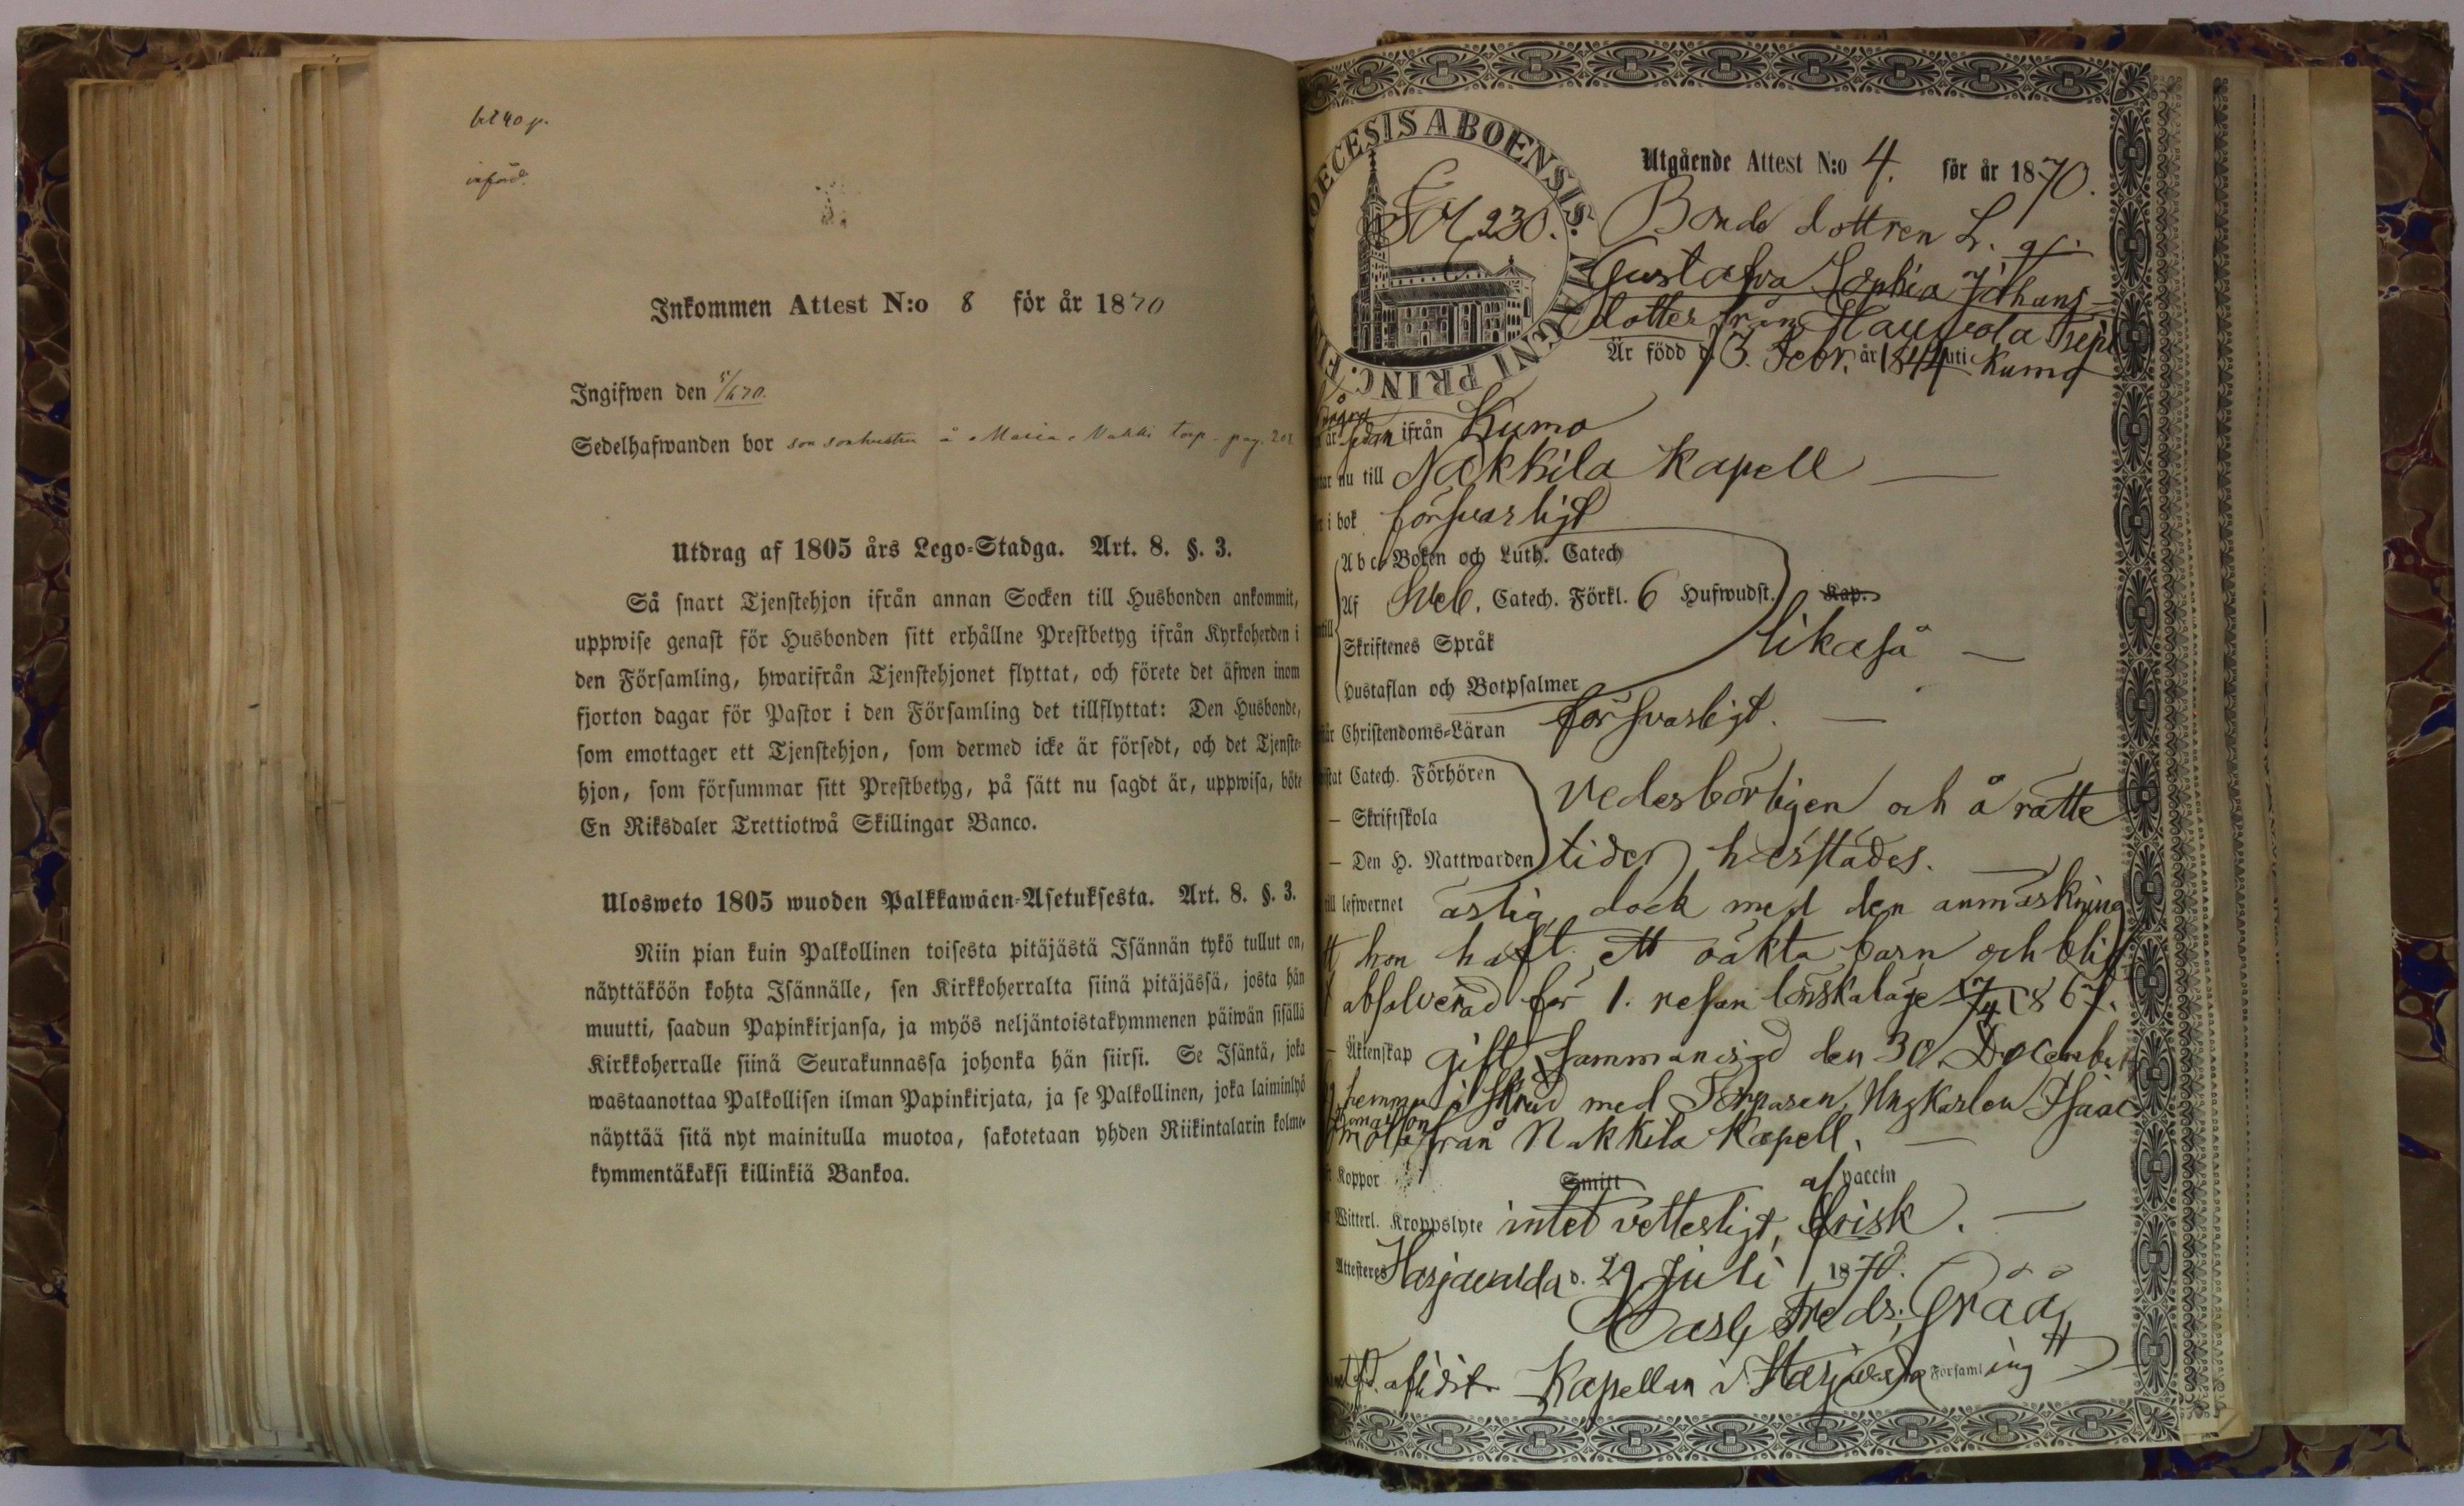 införd.
Inkommen Attest N:o 8 för år 1870
Ingifwen den
Sedelhafwanden bor son sonhustru å Maria Nakki torp. pag. 201
Utdrag af 1805 års Lego-Stadga. Art. 8. §. 3.
Så snart Tjenstehjon ifrån annan Socken till Husbonden ankommit,
uppwise genast för Husbonden sitt erhållne Prestbetyg ifrån Kyrkoherden i
den Församling, hwarifrån Tjenstehjonet flyttat, och förete det äfwen inom
fjorton dagar för Pastor i den Församling det tillflyttat: Den Husbonde,
som emottager ett Tjenstehjon, som dermed icke är försedt, och det Tjenste-
hjon, som försummar sitt Prestbetyg, på sätt nu sagdt är, uppwisa, böte
En Riksdaler Trettiotwå Skillingar Banco.
Ulosweto 1805 wuoden Palkkawäen-Asetuksesta. Art. 8. §. 3.
Niin pian kuin Palkollinen toisesta pitäjästä Isännän tykö tullut on,
näyttäköön kohta Isännälle, sen Kirkkoherralta siinä pitäjässä, josta hän
muutti, saadun Papinkirjansa, ja myös neljäntoistakymmenen päiwän sisällä
Kirkkoherralle siinä Seurakunnassa johonka hän siirsi. Se Isäntä, joka
wastaanottaa Palkollisen ilman Papinkirjata, ja se Palkollinen, joka laiminlyö
näyttää sitä nyt mainitulla muotoa, sakotetaan yhden Riikintalarin kolme-
kymmentäkaksi killinkiä Bankoa.
OECESIS ABOENSIS. PRINC.
230.
Utgående Attest N:o 4. för år 1870.
Bonde dottren L. qf.
Gustafva Sophia Johans-
dotter från
Är född d. 3. Febr. år 1844 uti Kumo
år sedan ifrån Kumo
nu till Nakkila Kapell
i bok försvarligt
Abc-Boken och Luth. Catech
Af Sveb. Catech. Förkl. 6 Hufwudst. Kap.
Skriftenes Språk likaså
Hustaflan och Botpsalmer
Christendoms-Läran försvarligt.
Catech. Förhören
– Skriftskola vederbörligen och å rätte
– Den H. Nattwarden tider härstädes.
till lefwernet ärlig, dock med den anmärkning
hon haft ett oäkta barn och blif
absolverad för 1. resan lönskaläge 1867.
– Äktenskap gift, sammanvigd den 30 December
med Torparen, Ungkarlen Isaac
från Nakkila Kapell.
Koppor Smitt af vaccin
Witterl. Kroppslyte intet vetterligt, frisk.
Attesteres Harjavalda d. 29 Juli 1870.
Carl Fredr. Gråå
Kapellan i Harjavalda Församling